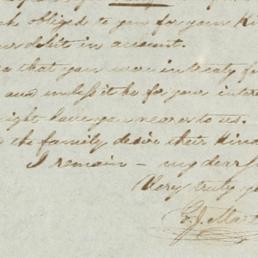 obliged to you for your Ki
in account.
that you were
and unless it be for your inter
ight have you nearer to us.
the family desire their kind
I remain – my dear
Very truly yo